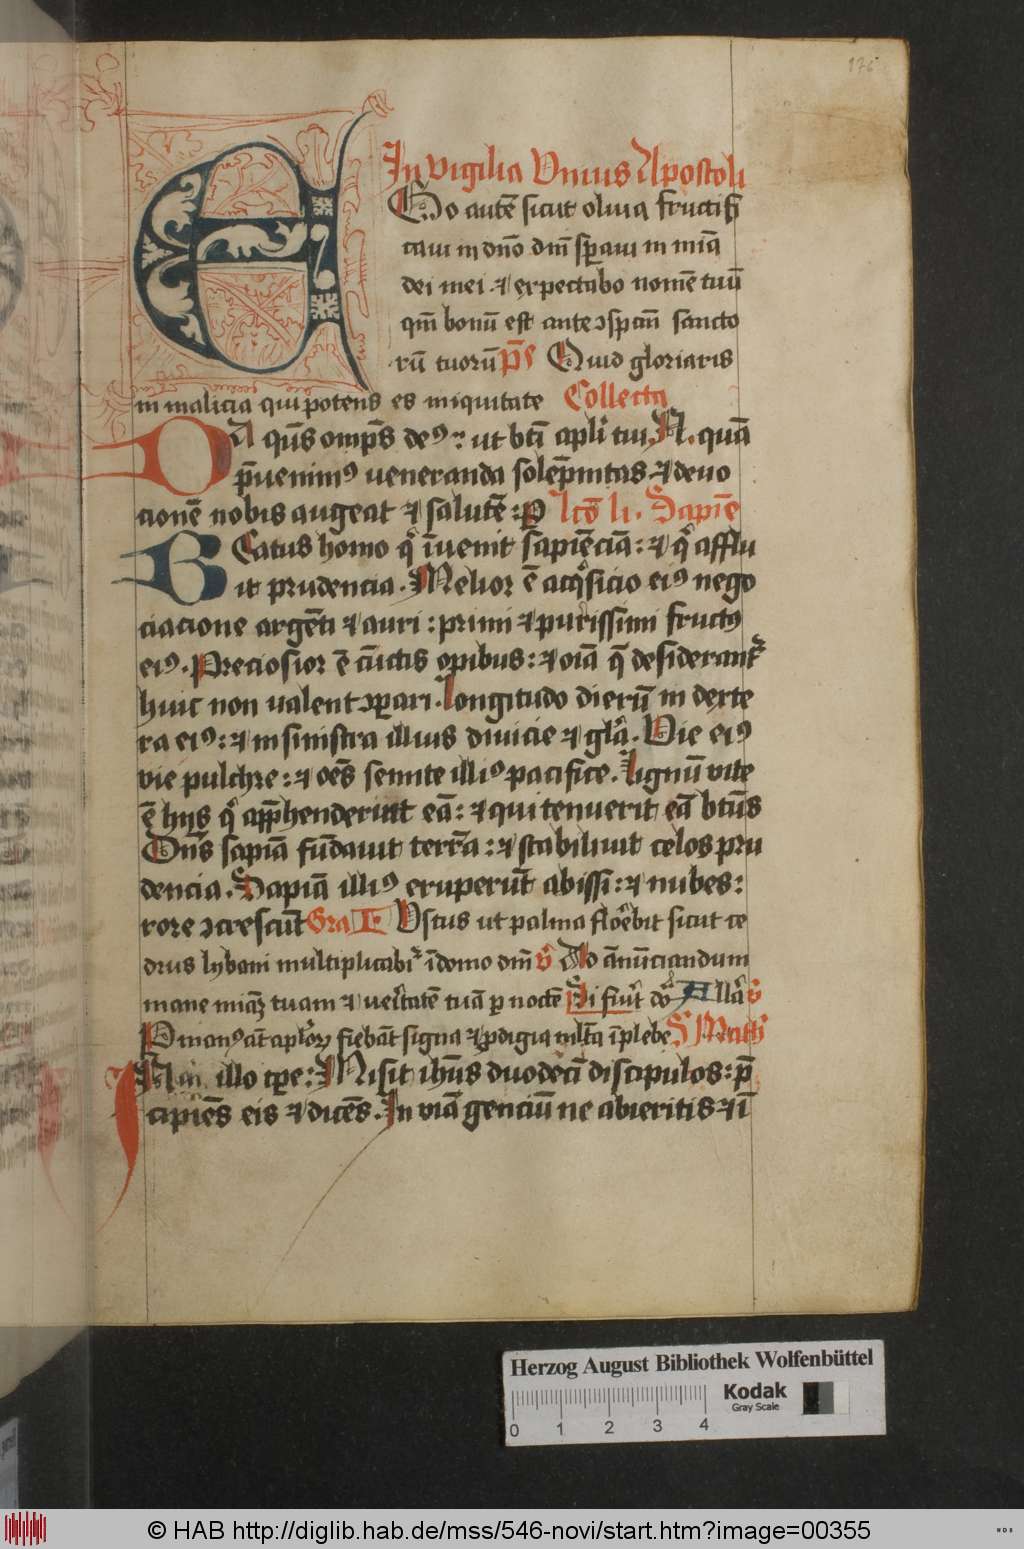 176
In vigilia Unius Apostoli
EGo autē sicut oliua fructifi
caui in dn̄o dm̄ sꝑaui in mīa
dei mei ⁊ expectabo nomē tuū
qm̄ bonū est ante ↄspc̄m sancto
rū tuorū p̄s Quid gloriaris
in malicia qui potens es in iniquitate Collecta
DA qūs omp̄s de⁹: ut bt̄i apl̄i tui N. quā
p̄uenim⁹ ueneranda solēpnitas ⁊ deuo
cionē nobis augeat ⁊ salutē: ꝑ lc̄o li. Sapiē
BEatus homo qͥ īuenit sapiēciā: ⁊ qͥ afflu
it prudencia. Melior ē acqͥsicio ei⁹ nego
ciacione argēti ⁊ auri: primi ⁊ purissimi fruct⁹
ei⁹. Preciosior ē cūctis opibus: ⁊ oīa q̄ desiderant᷑
huic non ualent ↄꝑari. Longitudo dierū in dexte
ra ei⁹: ⁊ in sinistra illius diuicie ⁊ glͣa. Uie ei⁹
uie pulchre: ⁊ oēs semite illi⁹ pacifice. Lignū uite
ē hijs qͥ app̄henderint eā: ⁊ qui tenuerit eā bt̄us
Dn̄s sapīa fūdauit terrā: ⁊ stabiliuit celos pru
dencia. Sapīa illi⁹ eruperūt abissi: ⁊ nubes:
rore ↄcrescūt Gra IUstus ut palma florebit sicut ce
drus lybani multiplicabit᷑ ī domo dn̄i v̄ Ad ānūciandum
mane miāꝫ tuam ⁊ ueritatē tuā ꝑ noctē Si fuīt do Allͣa v̄
P man⁹ āt aplōꝝ fiebāt signa ⁊ ꝓdigia mlt̄a ī plebe S Math
IN illo tꝑe: Misit ihūs duodecī discipulos: p̄
cipiēs eis ⁊ dicēs. In uiā genciū ne abieritis ⁊ ī
Herzog August Bibliothek Wolfenbüttel
Kodak
Gray Scale
0 1 2 3 4
© HAB http://diglib.hab.de/mss/546-novi/start.htm?image=00355